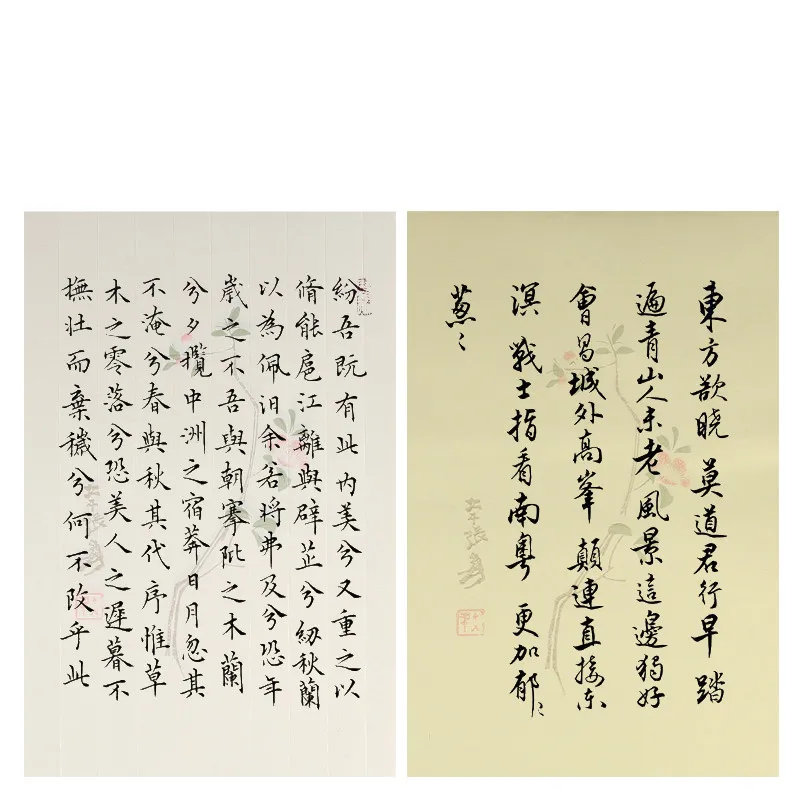 紛吾既有此內美兮又重之以
脩能扈江離與辟芷兮紉秋蘭
以為佩汨余若將弗及兮恐年
歲之不吾與朝搴阰之木蘭
兮夕攬中洲之宿莽日月忽其
不淹兮春與秋其代序惟草
木之零落兮恐美人之遲暮不
撫壯而棄穢兮何不改乎此
大千張爰
東方欲曉 莫道君行早 踏
遍青山人未老 風景這邊獨好
會昌城外高峯 顛連直接東
溟 戰士指看南粵 更加郁〻
蔥〻
大千張爰